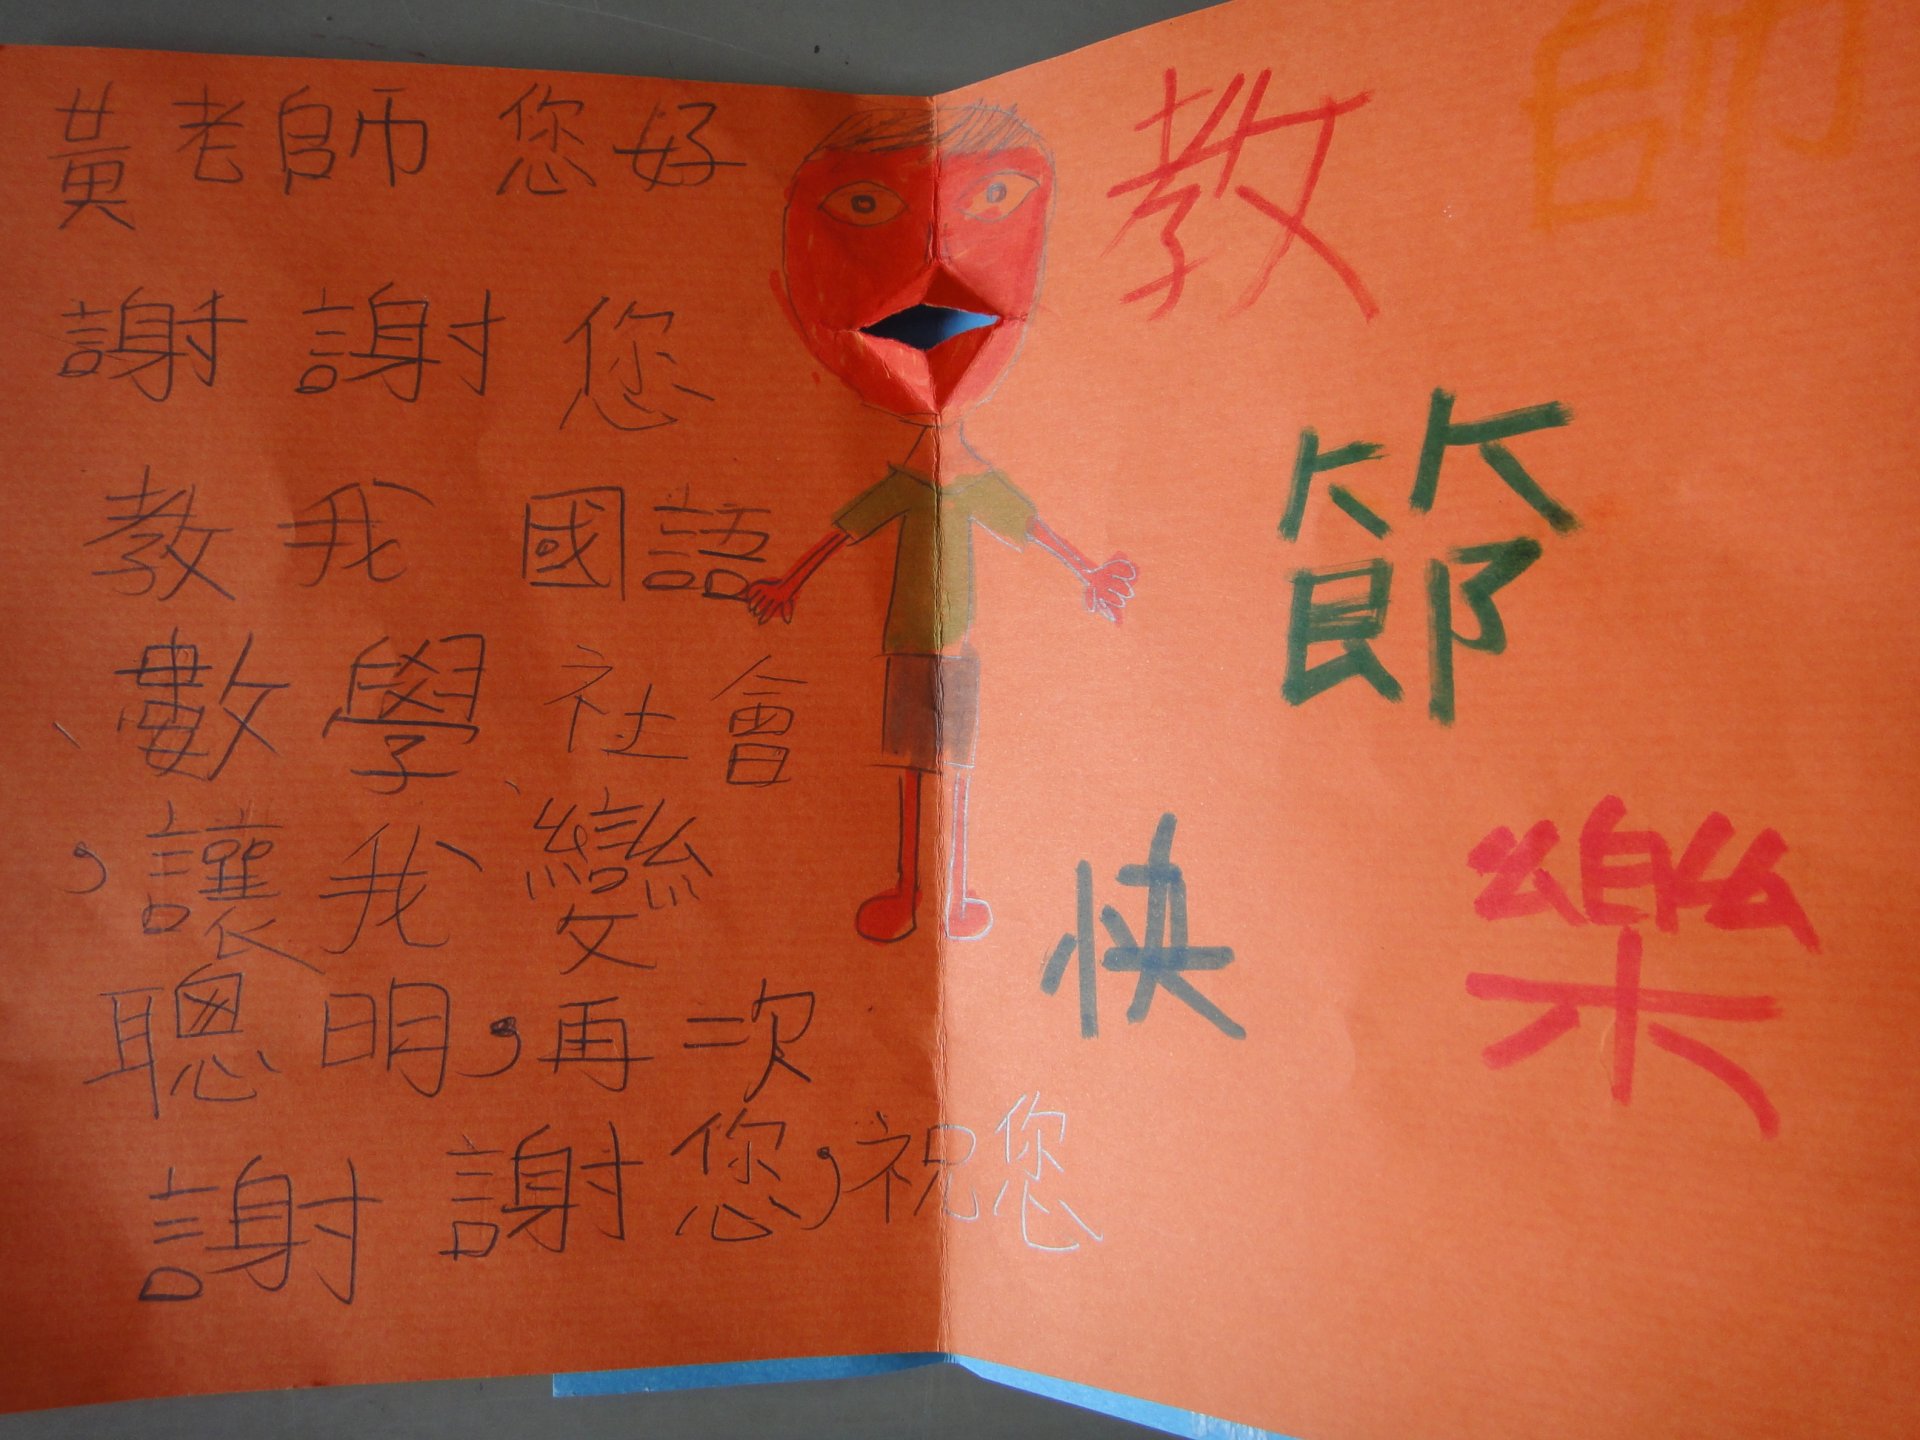 黃老師 您好
謝謝您
教我國語
、數學、社會
，讓我變
聰明，再次
謝謝您，祝您
教師
節
快樂